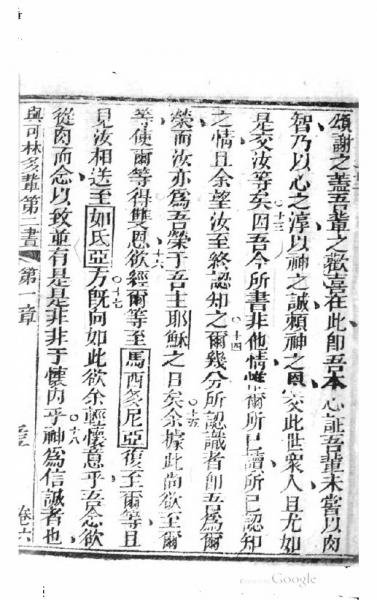 頌謝之蓋吾輩之歡喜在此即吾本心証吾輩未嘗以肉
智乃以心之淳以神之誠頼神之恩交此世衆人且尤如
○十三
是交汝等矣因吾今所書非他情惟爾所已讀所已認知
○十四
之情且余望汝至終認知之爾幾分所認識者即吾為爾
榮而汝亦為吾榮于吾主耶穌之日矣余據此尚欲至爾
○十五
等使爾等得雙恩欲經爾等至馬西多尼亞復至爾等且
○十六
見汝相送至如氐亞方既向如此欲余輕懷意乎吾念欲
○十七
從肉而念以致並有是是非非于懷内乎神為信誠者也
○十八
與可林多輩第二書 第一章 卷六
Google